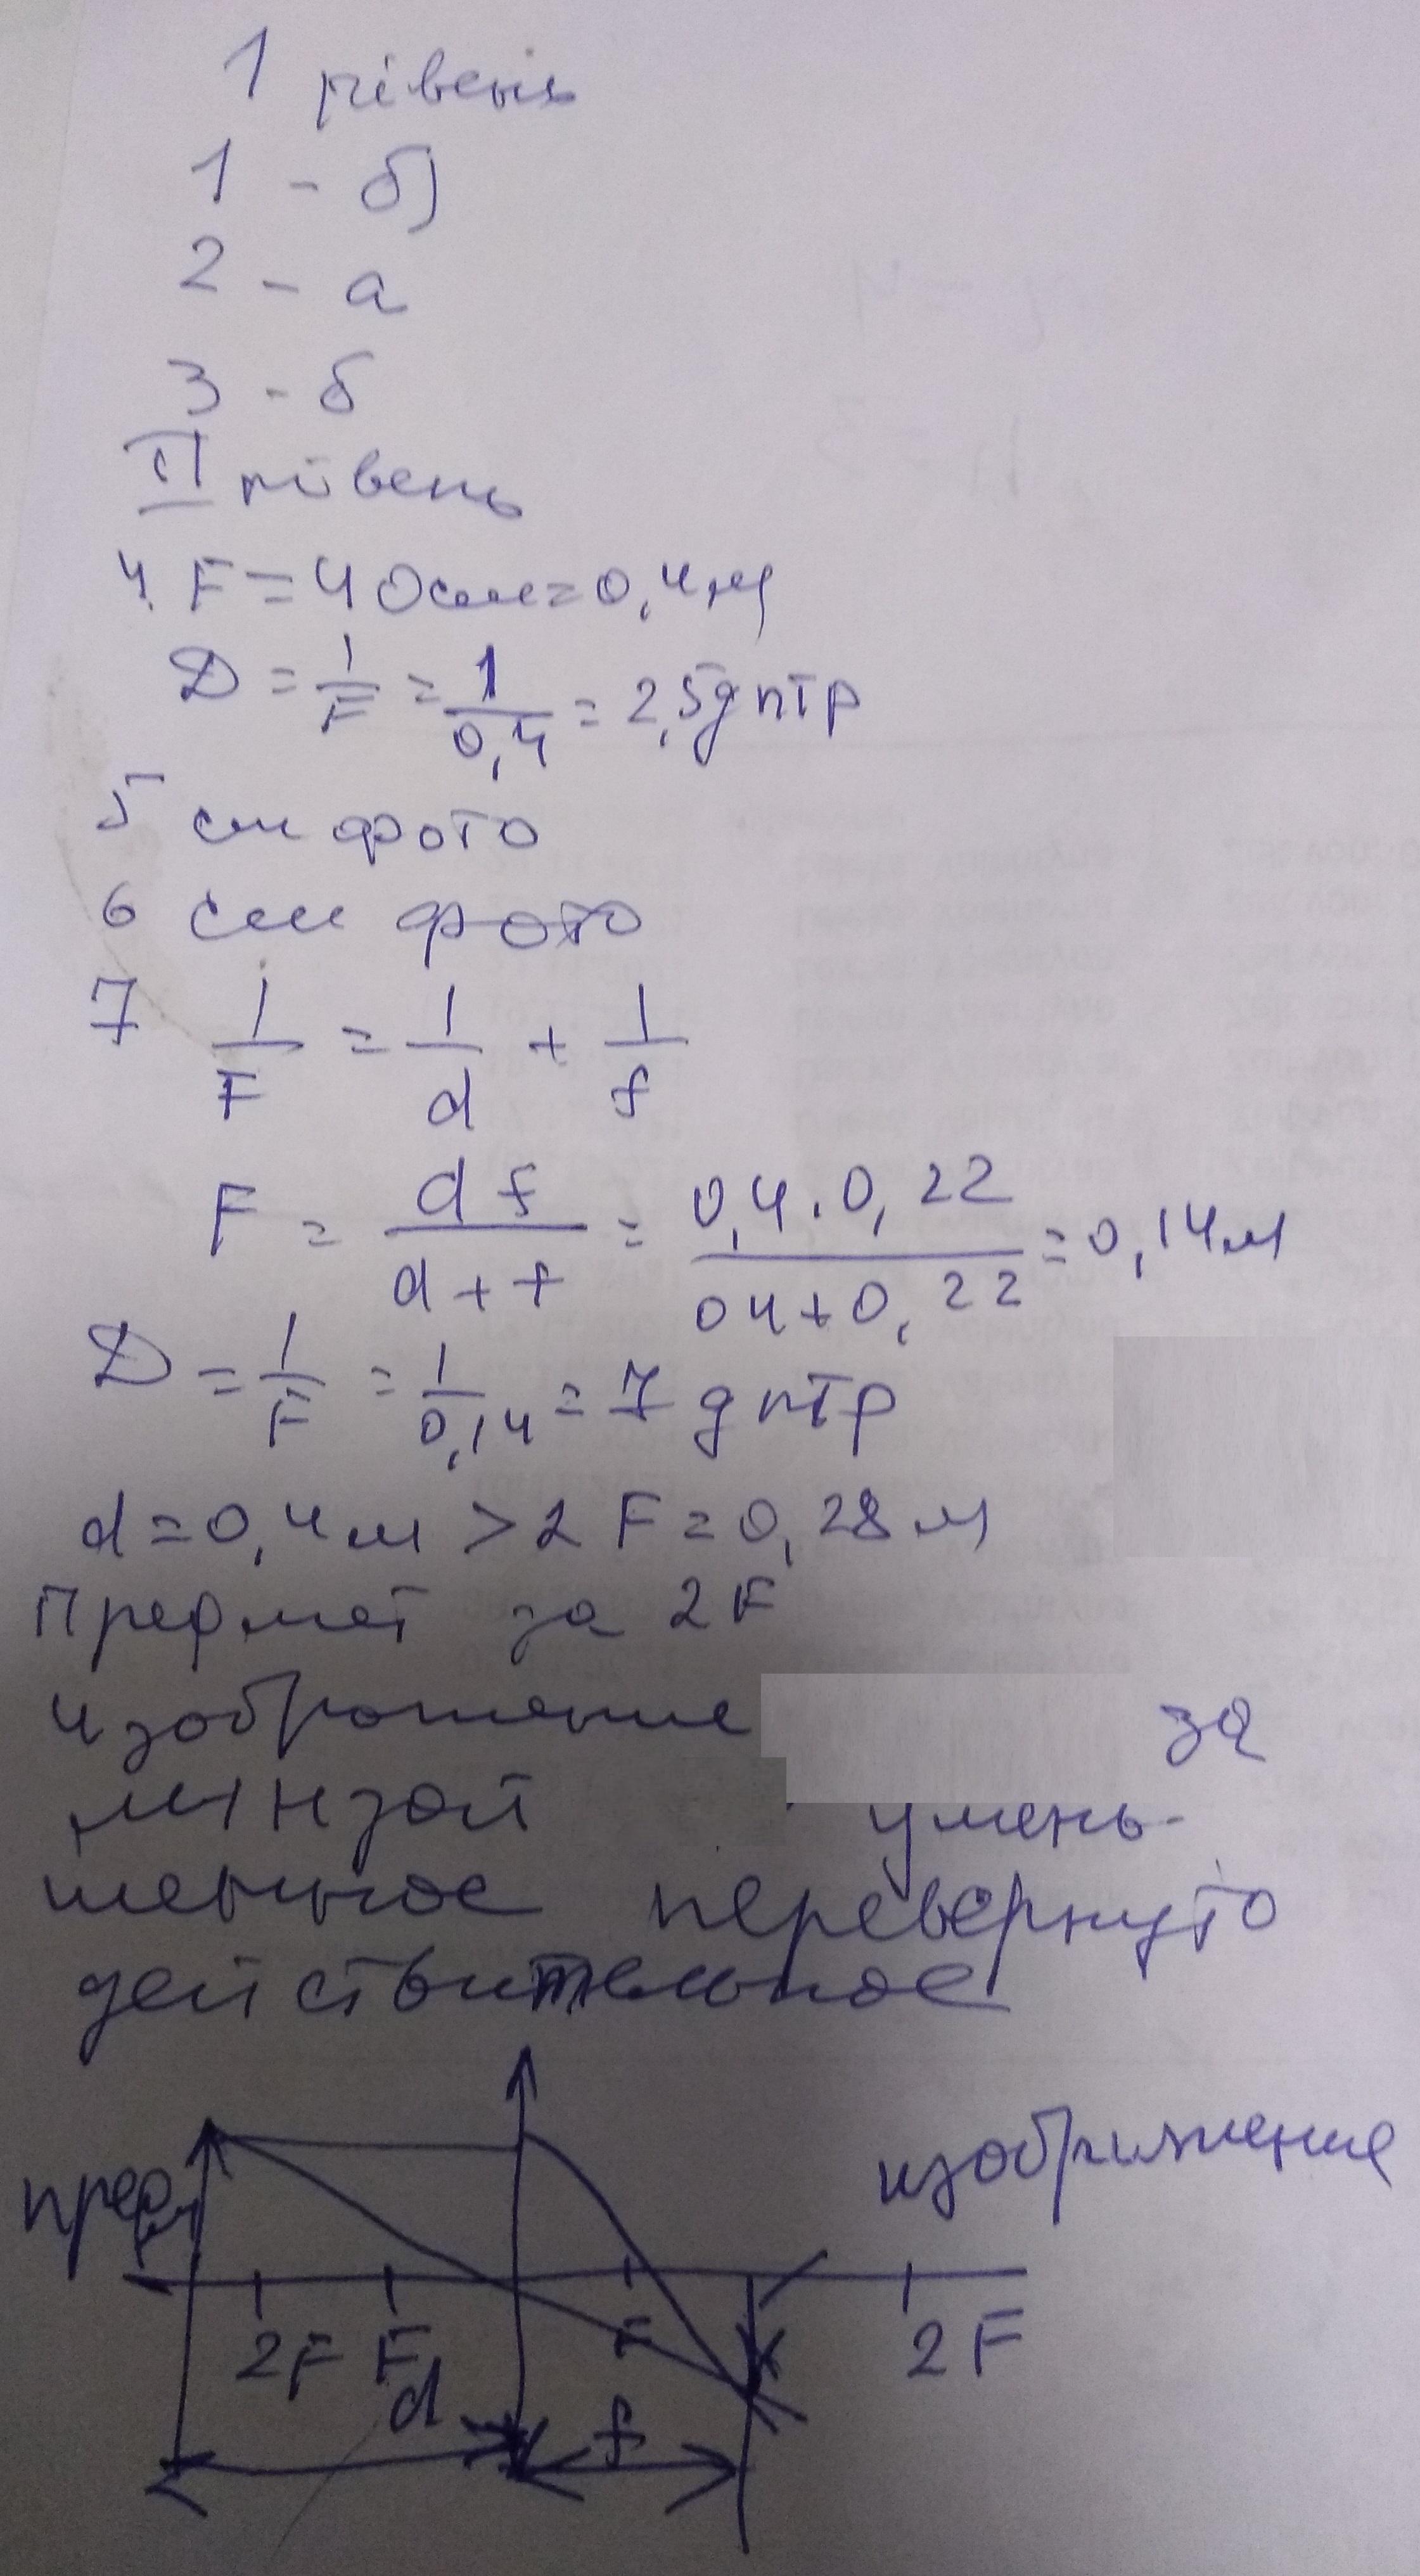 1 рівень
1 - б)
2 - а
3 - б
II рівень
4. F = 40см = 0,4м
D = 1/F = 1/0,4 = 2,5дптр
5 см фото
6 см фото
7 1/F = 1/d + 1/f
F = df/d+f = 0,4·0,22/04+0,22 = 0,14м
D = 1/F = 1/0,14 = 7 дптр
d=0,4м > 2F = 0,28м
Предмет за 2F
изображение за
линзой умень-
шенное перевернуто
действительное
изображение
пред
2F F F 2F
d f